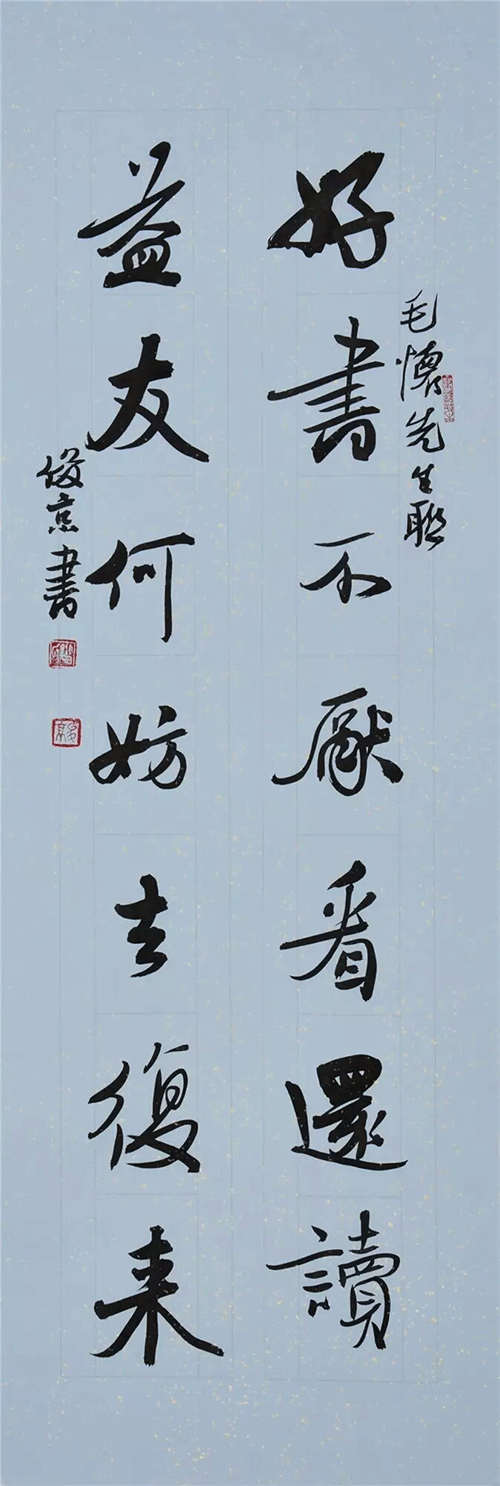 毛懷先生聯
好書不厭看還讀
益友何妨去復来
俊京書